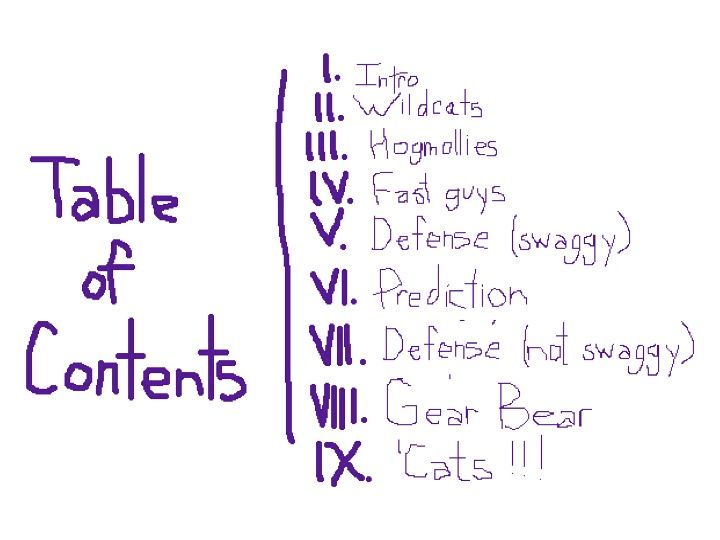 Table
of
Contents
I. Intro
II. Wildcats
III. Hogmollies
IV. Fast guys
V. Defense (swaggy)
VI. Prediction
VII. Defense (not swaggy)
VIII. Gear Bear
IX. 'Cats !!!